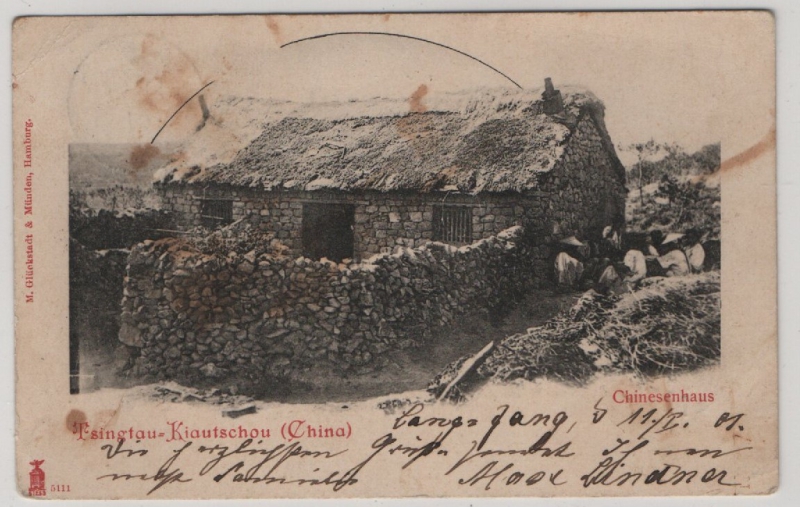 M. Glückstadt & Münden, Hamburg.
Chinesenhaus
Tsingtau-Kiautschou (China)
Lang-Fang, d 11/I. 01.
Die herzlichsten Grüße sendet Ihnen
nebst Familie Max Lindner
5111